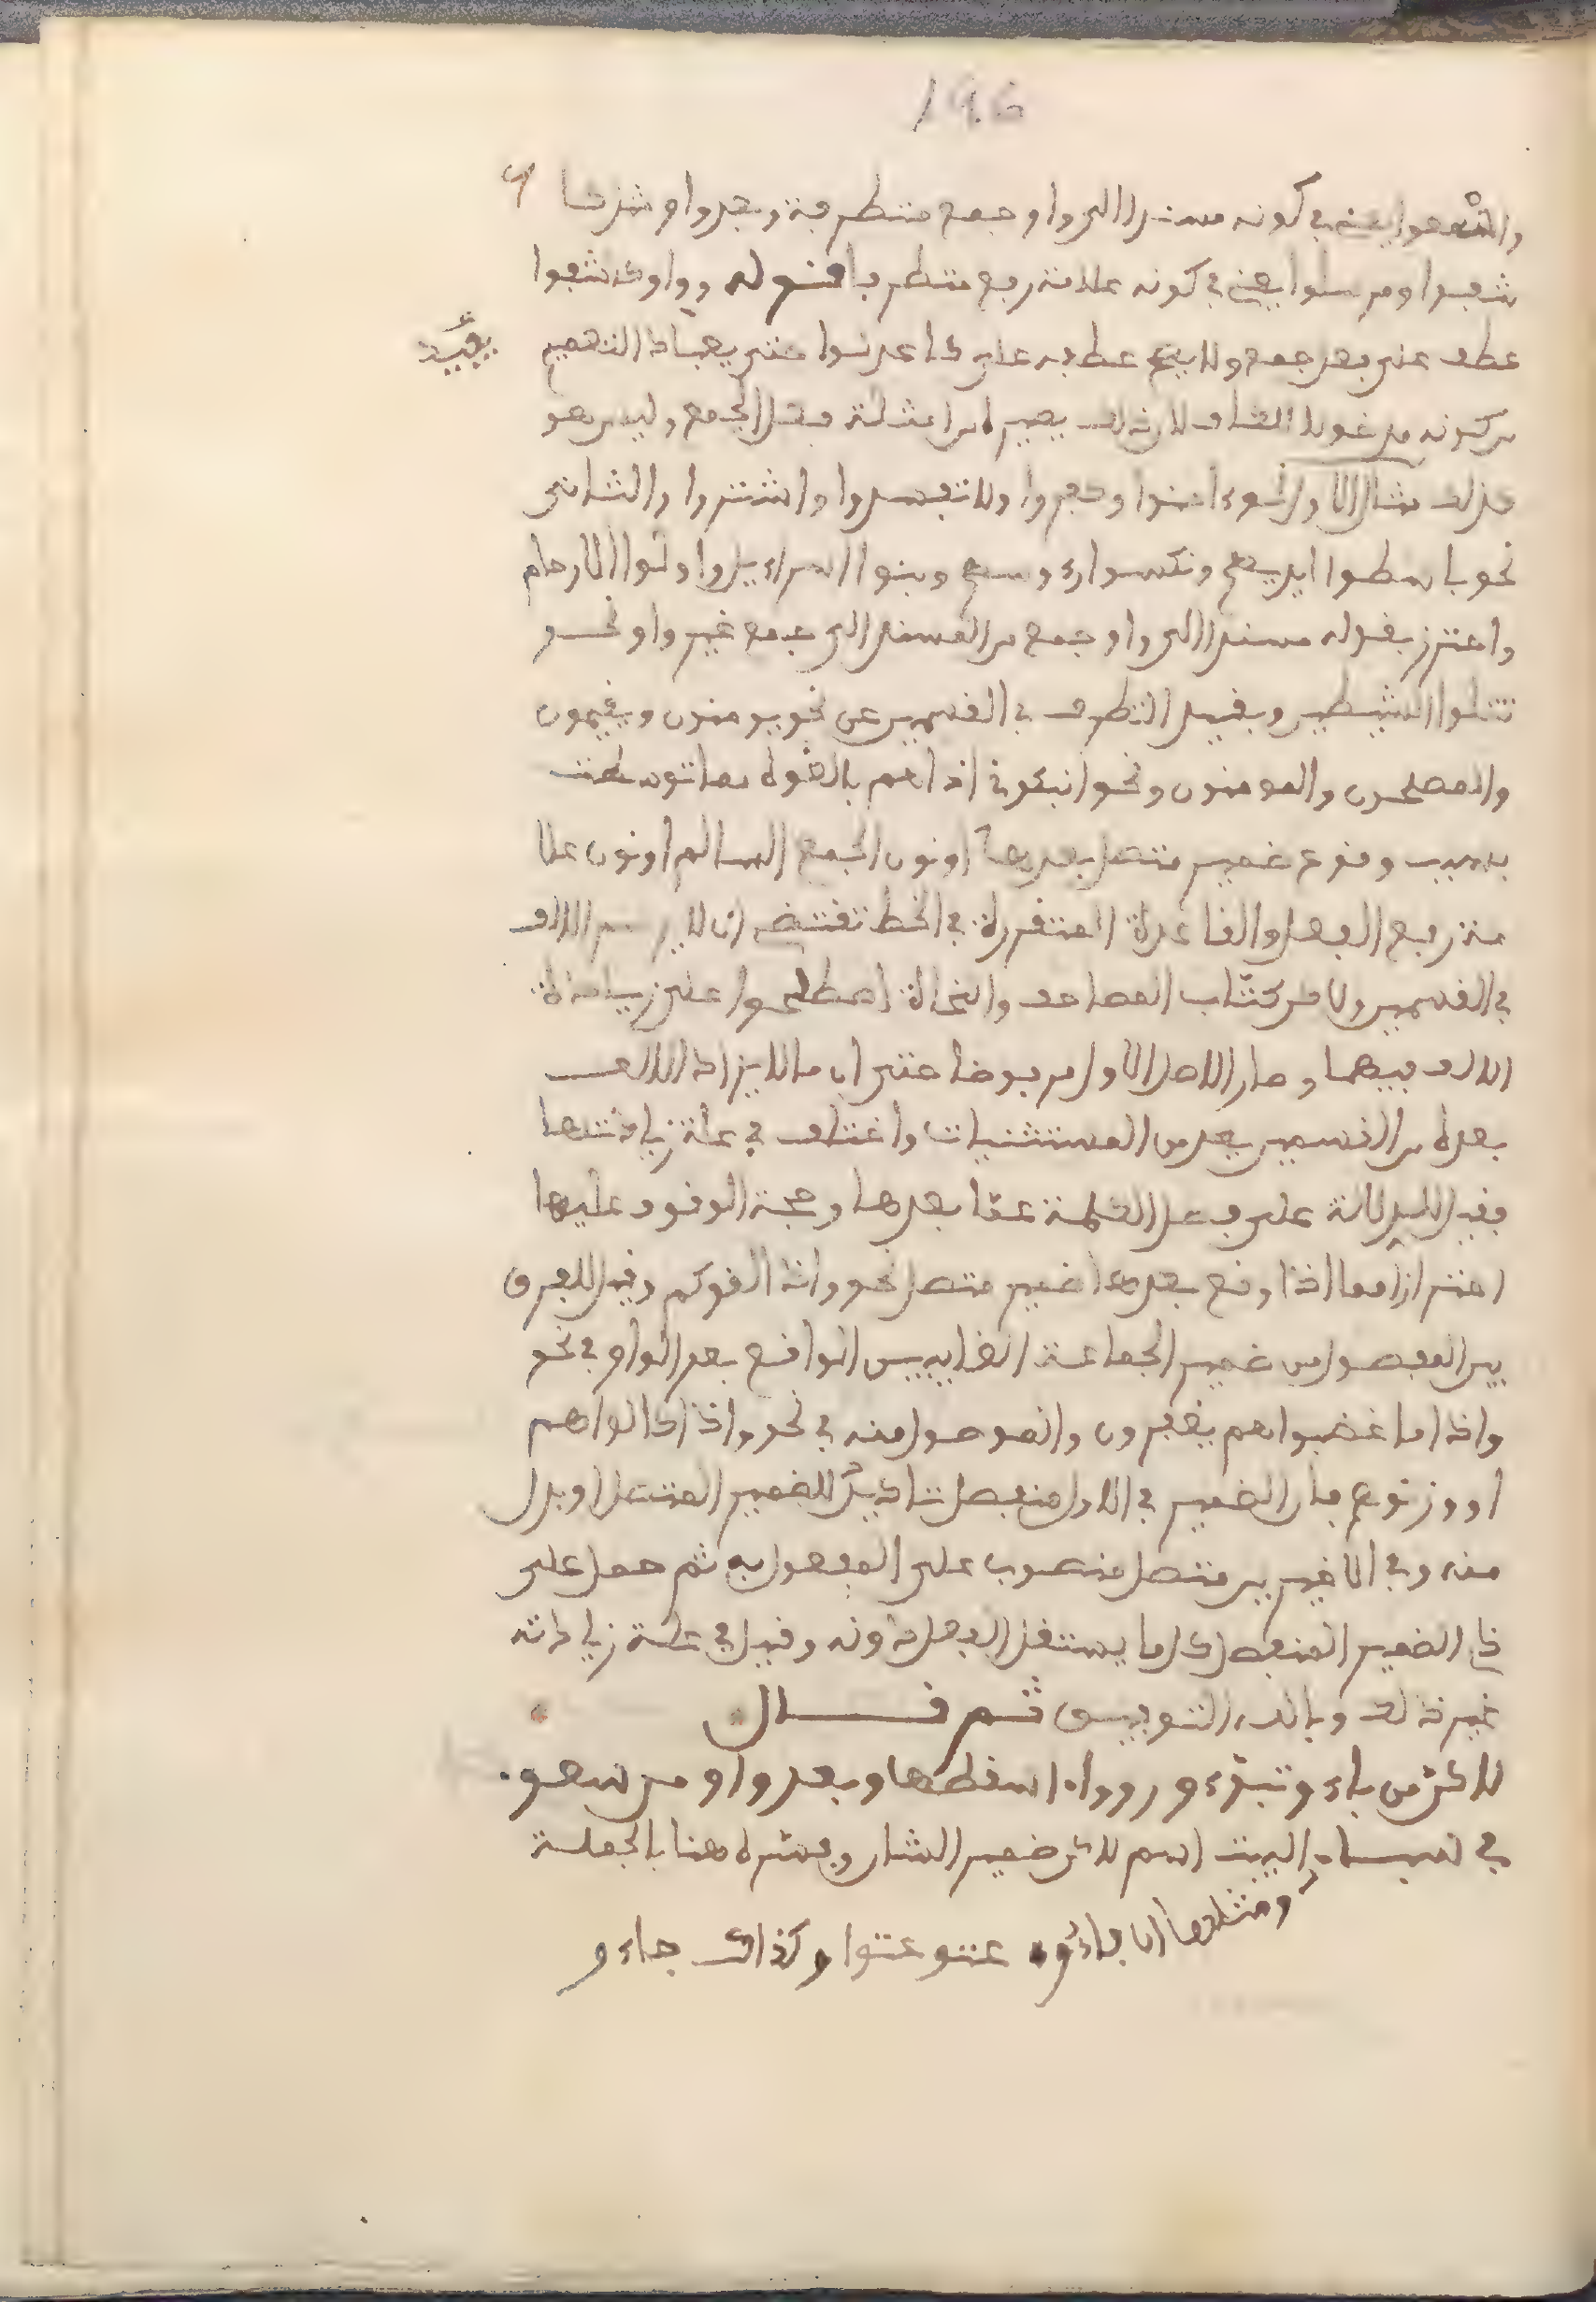 196
واشبهوا يعني في كونه مسندا الى واو جمع متطرفة وبعد واو شذ حذف
شعبوا ومرسلوا يعني في كونه علامة رفع متطرفا فقوله وواو كشفوا
عطف على فعل جمع ولا يصح عطفه على كاعدلوا حتى يعباد التعميم
يفيد
من كونه مدغولا الكاف لان ذلك يصير امر امثلة فعل الجمع وليس هو
كذلك مثال الاول نحو ءامنوا وكفروا ولا تفسدوا واشتروا والثاني
نحو باسطوا ايديهم وناكسوا رءوسهم وبنوا اسراءيل واولوا الارحام
واحترز بقوله مسندا الى واو جمع من المسند الى جمع غير واو نحو
تتلوا الشيطين وبقيد التطرف في القسمين عن نحو يومنون ويقيمون
والمصلحون والمومنون ونحو انبكوني اذا هم بالقوه مما توسطت
بسبب وقوع ضمير متصل بعدها او نون الجمع السالم او نون علا
مة رفع الفعل والقاعدة المتقررة في الخط تقتضي ان لا ترسم الالف
في القسمين ولاكن كتاب المصاحف والنحاة اصطلحوا على زيادة
الالف فيهما وصار الاصل الاول مرفوضا حتى ان ما لا يزاد الالف
بعده من القسمين يعد من المستثنيات واختلف في علة زيادتها
فقيل للدلالة على فصل الكلمة عما بعدها وصحة الوقوف عليها
احترازا مما اذا وقع بعدها ضمير متصل نحو واذا القوكم وقيل للفرق
بين المفصول من ضمير الجماعة الغايبين الواقع بعد الواو في نحو
واذا ما غضبوا هم يغفرون والموصول منه في نحو واذا كالوهم
او وزنوهم فان الضمير في الاول منفصل تاكيد للضمير المتصل او بدل
منه وفي الاخيرين متصل منصوب على المفعول به ثم حمل على
ذا الضمير المنفصل كل ما يستقل الفعل دونه وقيل في علة زيادته
غير ذلك وبالله التوفيق ثم قال
لاكن من باءو تبوءو رووا اسقطها وبعد واو من سعو
في سبا البيت اسم لاكن ضمير الشان وفسره هنا بالجملة
ومثلها ان فاءو عتو عتوا وكذاك جاءو